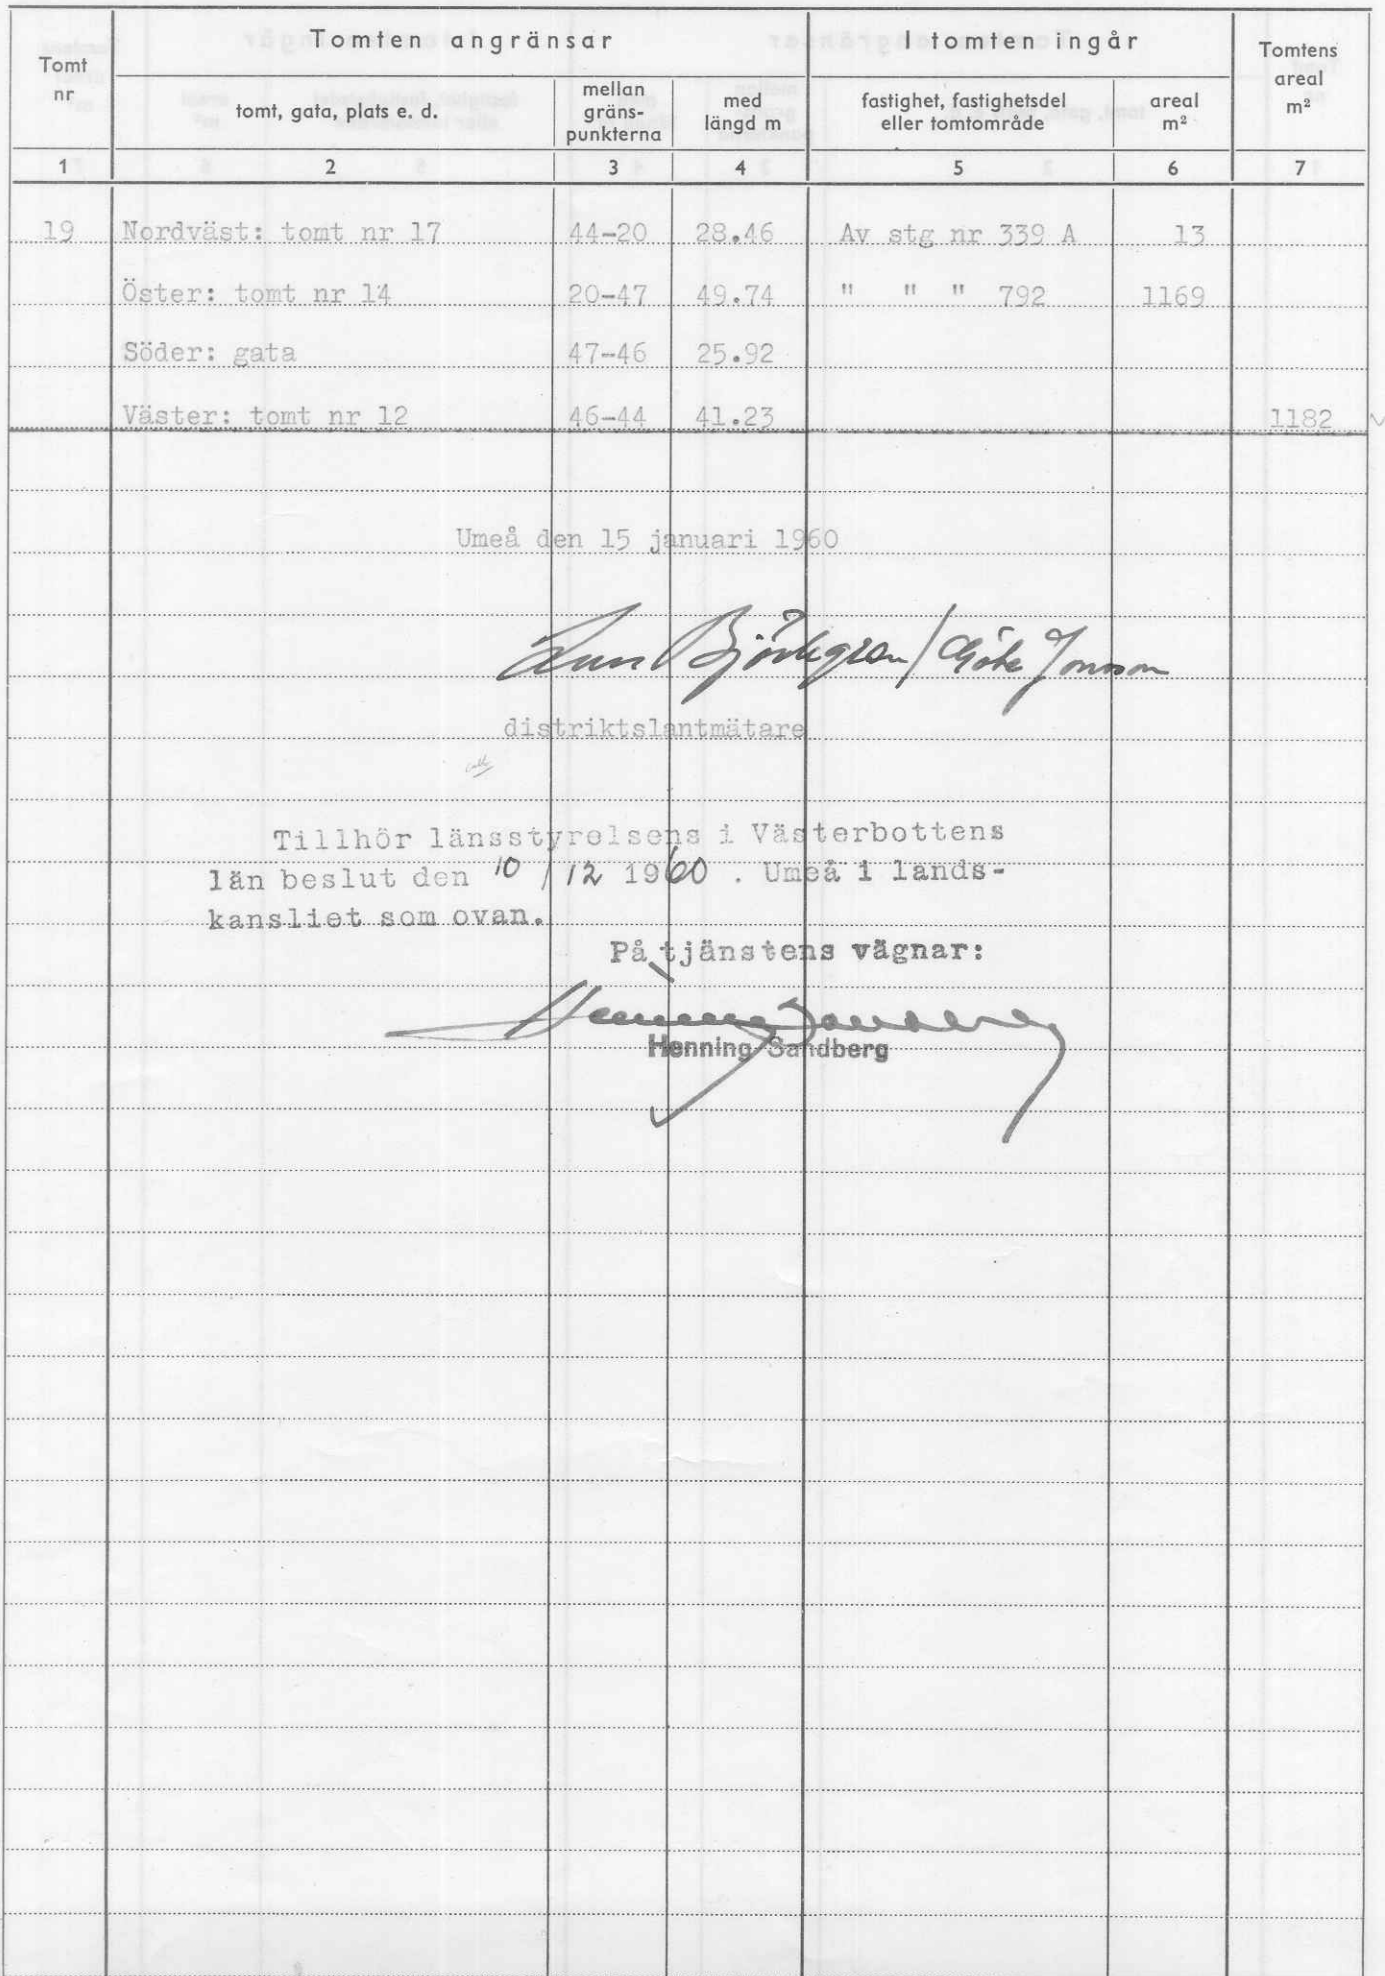 Tomt nr
Tomten angränsar
I tomten ingår
Tomtens areal m²
tomt, gata, plats e. d.
mellan gräns-punkterna
med längd m
fastighet, fastighetsdel eller tomtområde
areal m²
1 2 3 4 5 6 7
19 Nordväst: tomt nr 17 44-20 28.46 Av stg nr 339 A 13
Öster: tomt nr 14 20-47 49.74 " " " 792 1169
Söder: gata 47-46 25.92
Väster: tomt nr 12 46-44 41.23 1182
Umeå den 15 januari 1960
Björkgren / Göte Jonsson
distriktslantmätare
Tillhör länsstyrelsens i Västerbottens
län beslut den 10 / 12 1960 . Umeå i lands-
kansliet som ovan.
På tjänstens vägnar:
Henning Sandberg
Henning Sandberg